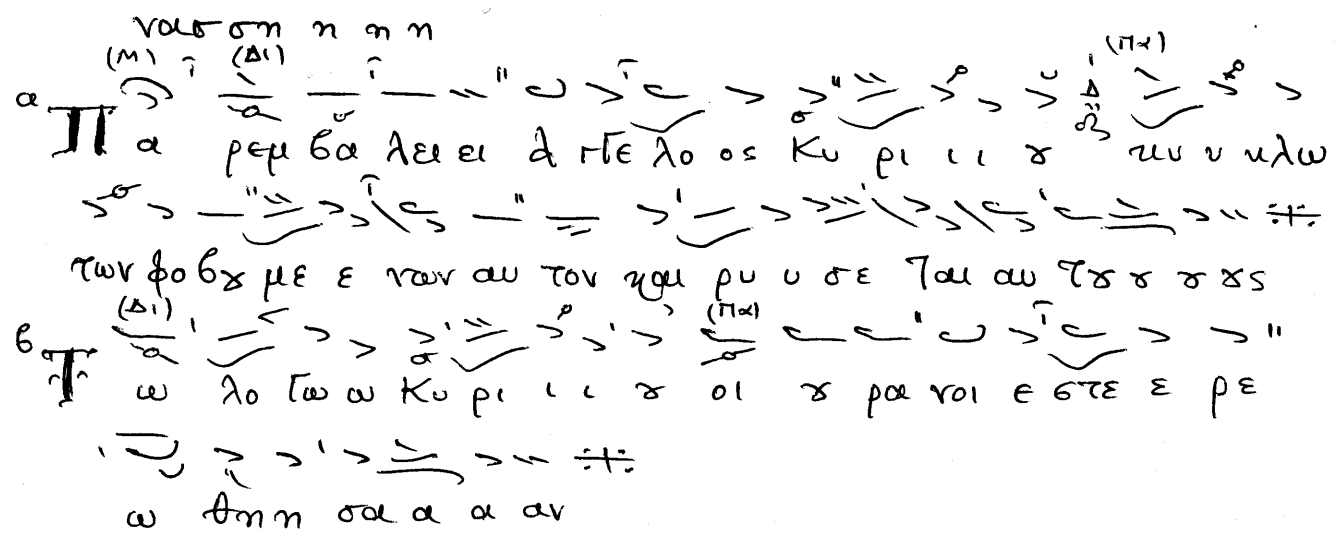 νασ ση η η η
(Μ) (Δι) (Πα)
α Πα ρεμ βα λει ει α γγε λο ος Κυ ρι ι ι ȣ κυ υ κλω
των φο βȣ με ε νων αυ τον και ρυ υ σε ται αυ τȣ ȣ ȣ ȣς
(Δι) (Πα)
β Τω λο γω ω Κυ ρι ι ι ȣ οι ȣ ρα νοι ε στε ε ρε
ω θη η σα α α αν